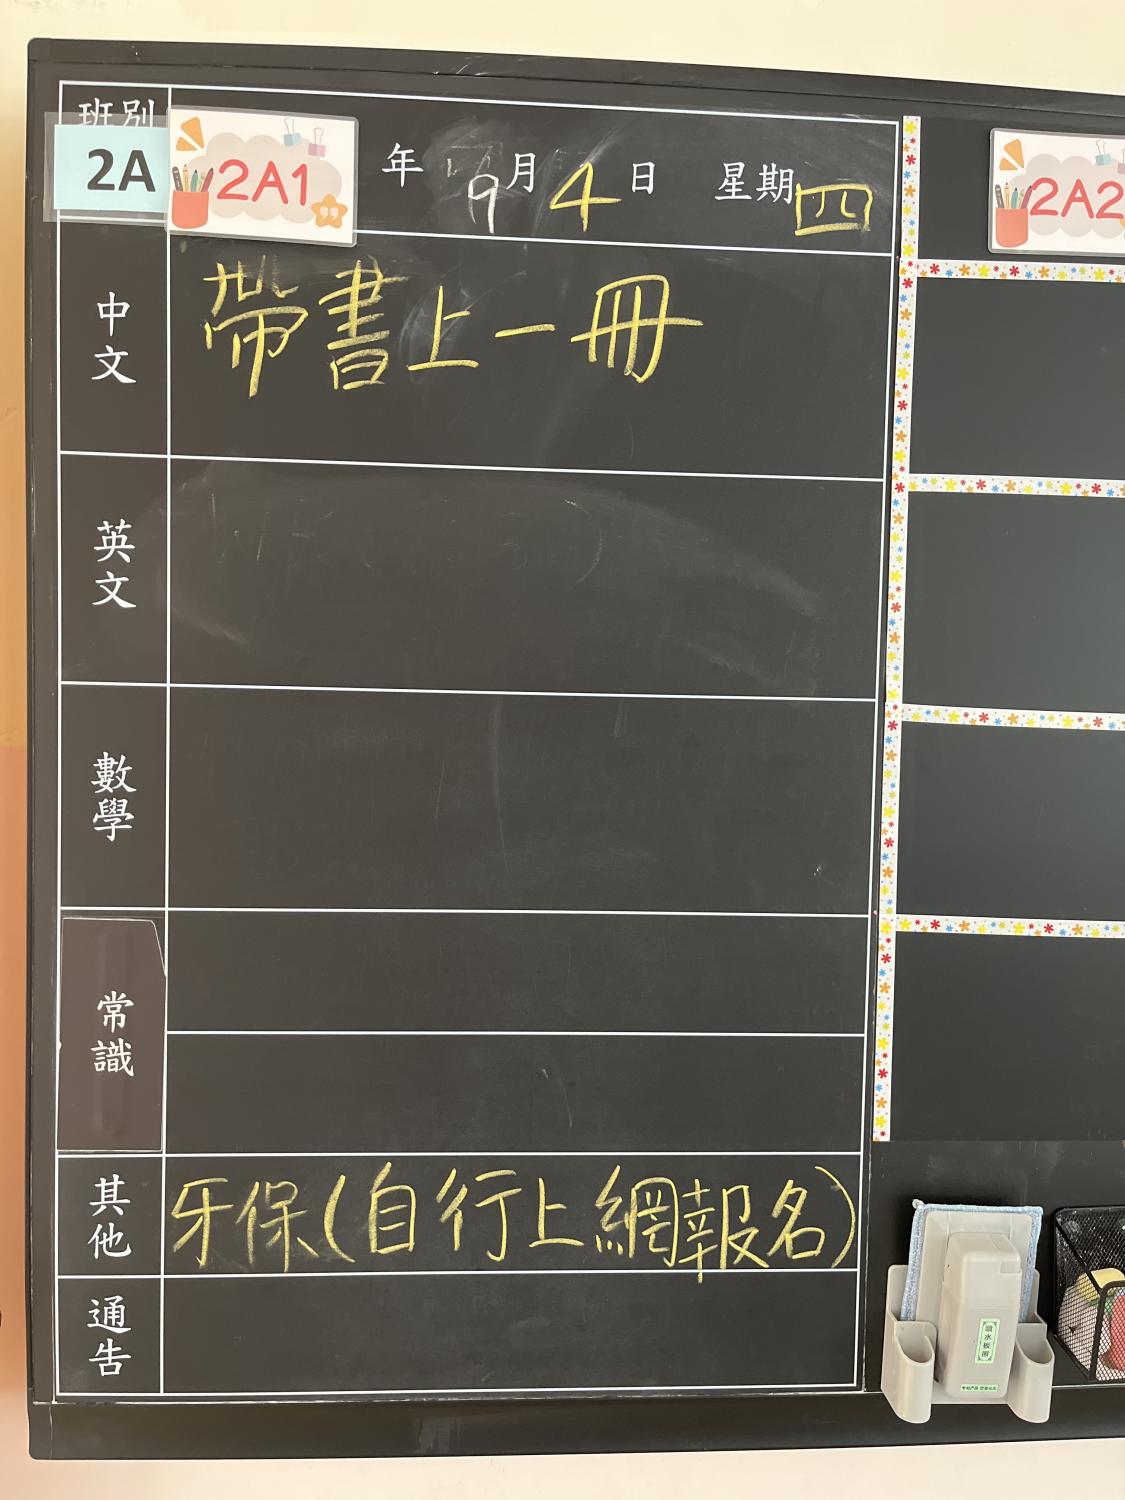 班別
2A
2A1
年 9月4日 星期四
2A2
中文
帶書上一冊
英文
數學
常識
其他
牙保(自行上網報名)
通告